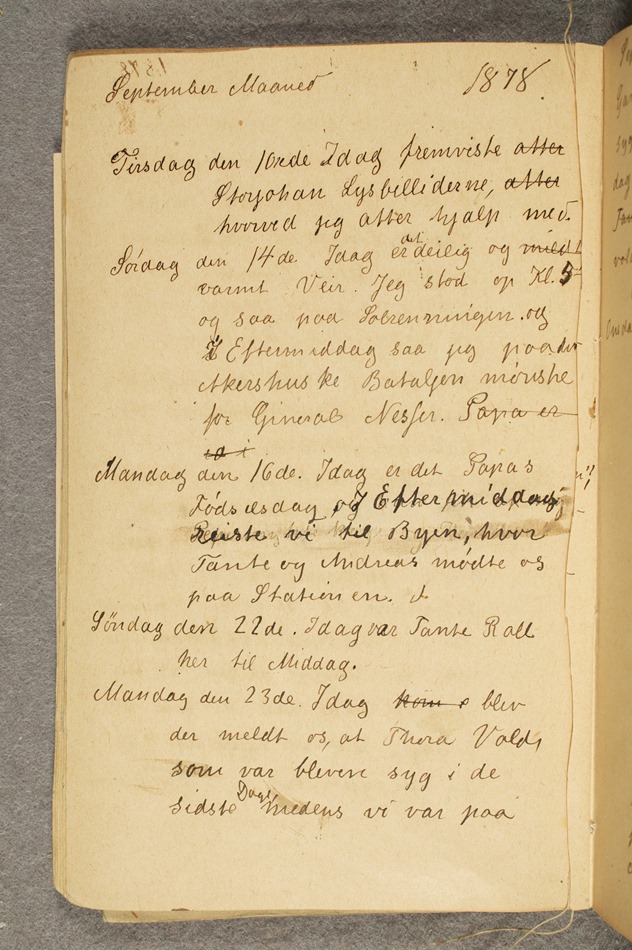 September Maaned 1878.
Tirsdag den 10de Idag fremviste atter
Storjohan Lysbillederne, atter
hvorved jeg atter hjalp med.
Lørdag den 14de Idag er det deilig og mildt
varmt Veir. Jeg stod op Kl. 5
og saa paa Solrenningen. og
I Eftermiddag saa jeg paa den
Akershuske Bataljon mønstre
for General Nesser. Papa er
id i
Mandag den 16de. Idag er det Papas
Fødselsdag og I Eftermiddag
Reiste vi til Byen, hvor
Tante og Andreas mødte os
paa Stationen.
Søndag den 22de. Idag var Tante Roll
her til Middag.
Mandag den 23de. Idag kom blev
der meldt os, at Thora Vold,
som var bleven syg i de
sidste Dage, medens vi var paa